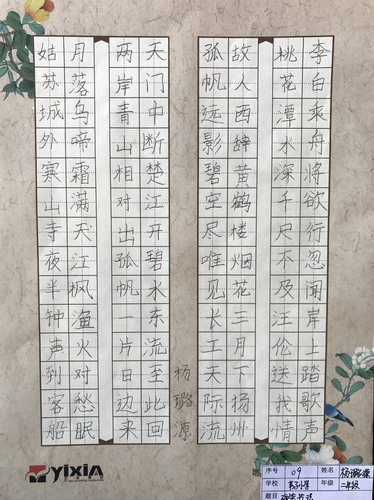 李白乘舟将欲行忽闻岸上踏歌声
桃花潭水深千尺不及汪伦送我情
故人西辞黄鹤楼烟花三月下扬州
孤帆远影碧空尽唯见长工天际流
天门中断楚江开碧水东流至此回
两岸青山相对出孤帆一片日边来
月落乌啼霜满天江枫渔火对愁眠
姑苏城外寒山寺夜半钟声到客船
杨璐源
YIXIN
序号 09 姓名 杨璐源
学校 年级
题目